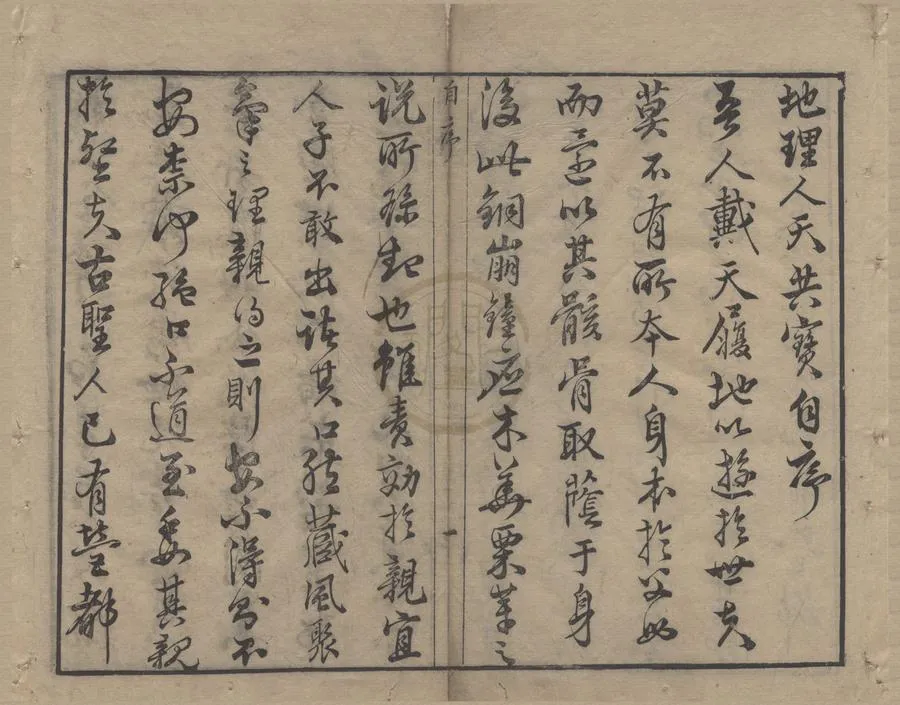 地理人天共寶自序
吾人戴天履地以遊於世者
莫不有所本人身本於父母
而還以其骸骨取蔭于身
後此銅崩鐘應木華栗芽之
自序
一
說所繇起也雖責効於親宜
人子不敢出諸其口然藏風聚
氣之理親得之則安不得則不
安柰何絕口不道至委其親
於壑者古聖人已有營都